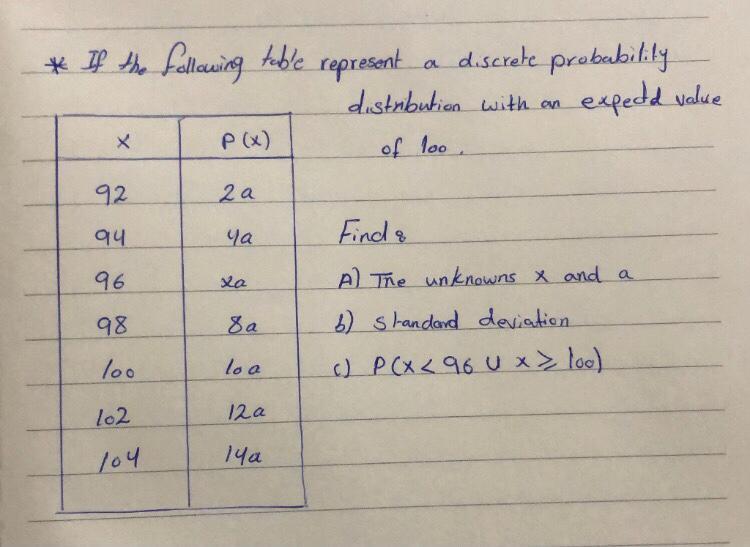 * If the following table represent a discrete probability
distribution with an expectd value
of 100.
x P(x)
92 2a
94 4a
96 xa
98 8a
100 10a
102 12a
104 14a
Find :
A) The unknowns x and a
b) standard deviation
c) P(x < 96 U x ≥ 100)